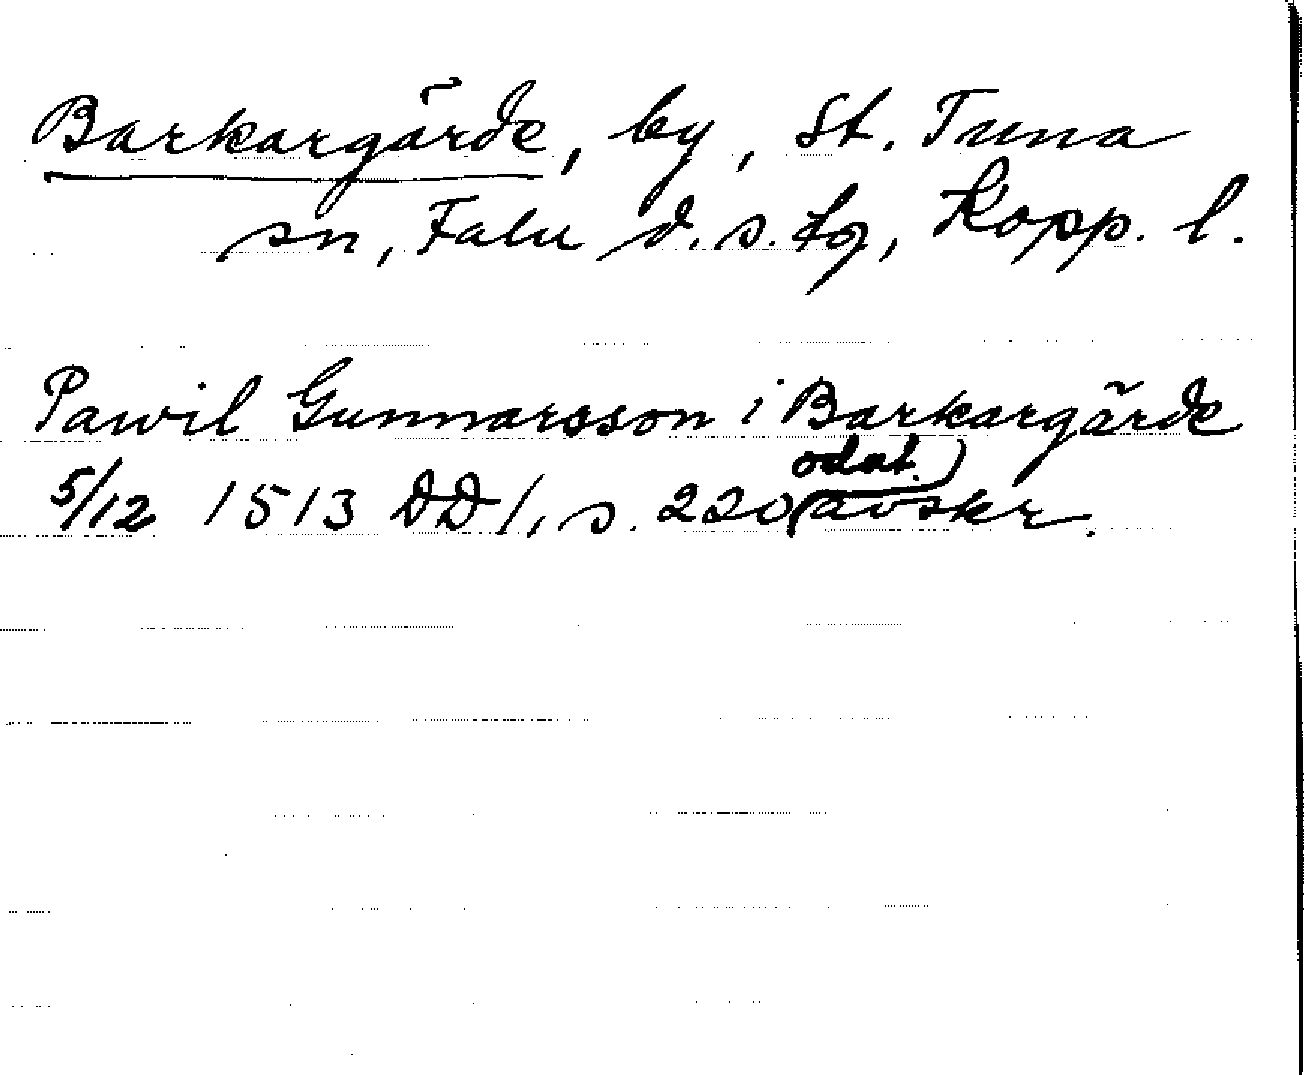 Barkargärde, by, St. Tuna
sn, Falu d.s. tg, Kopp. l.
Pawil Gunnarsson i Barkargärde
5/12 1513 DD 1, s. 220 (odat. avskr.)